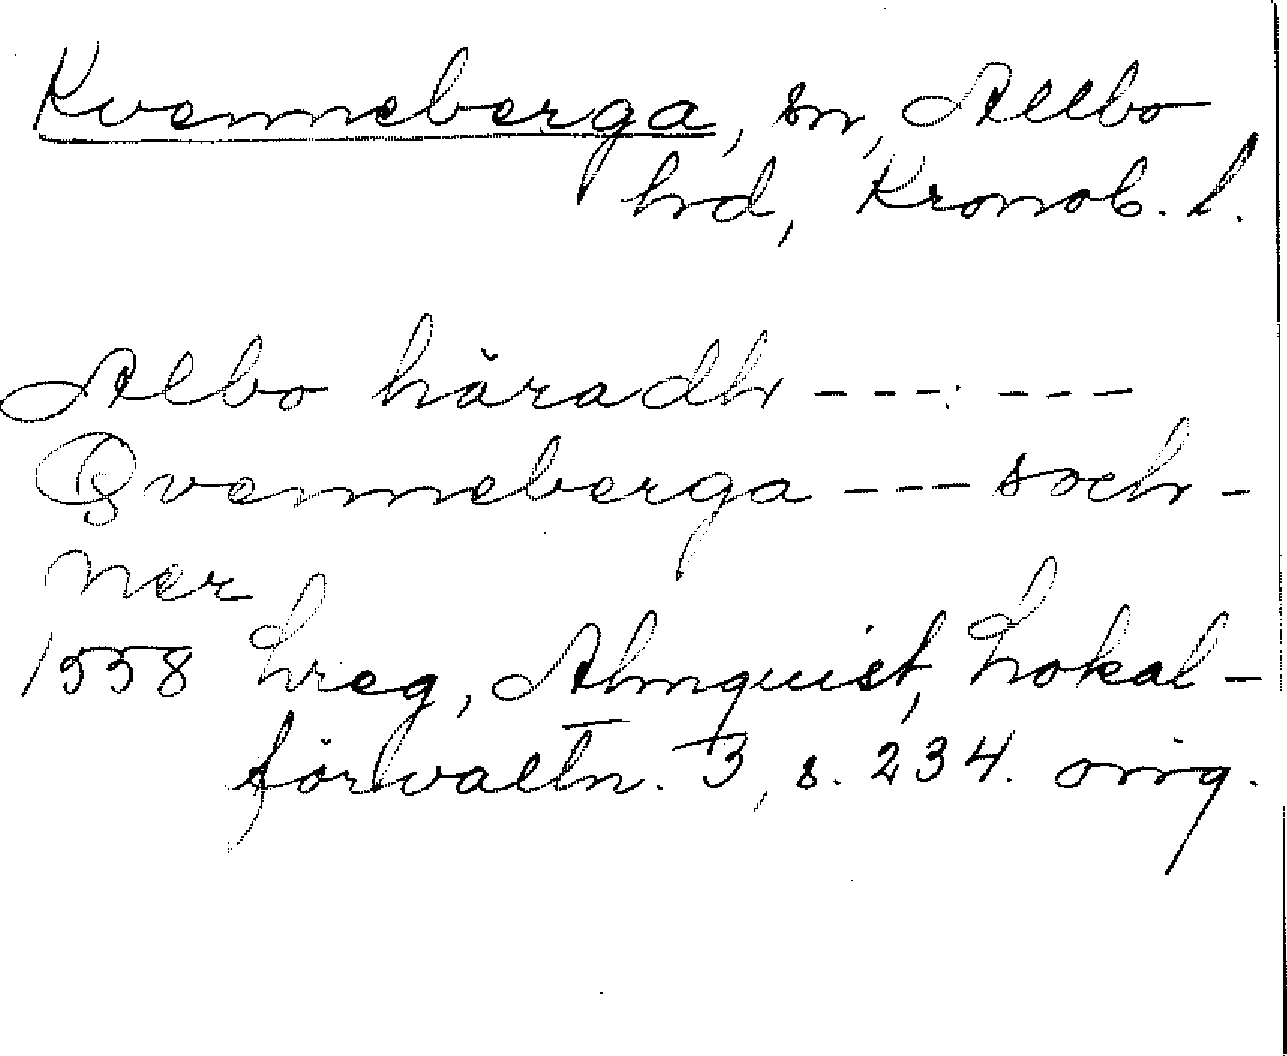 Kvenneberga, sn, Allbo
hd, Kronob. l.
Albo häradh --- : ---
Qvenneberga --- soch-
ner
1558 Lreg, Almquist, Lokal-
förvaltn. 3, s. 234. orig.